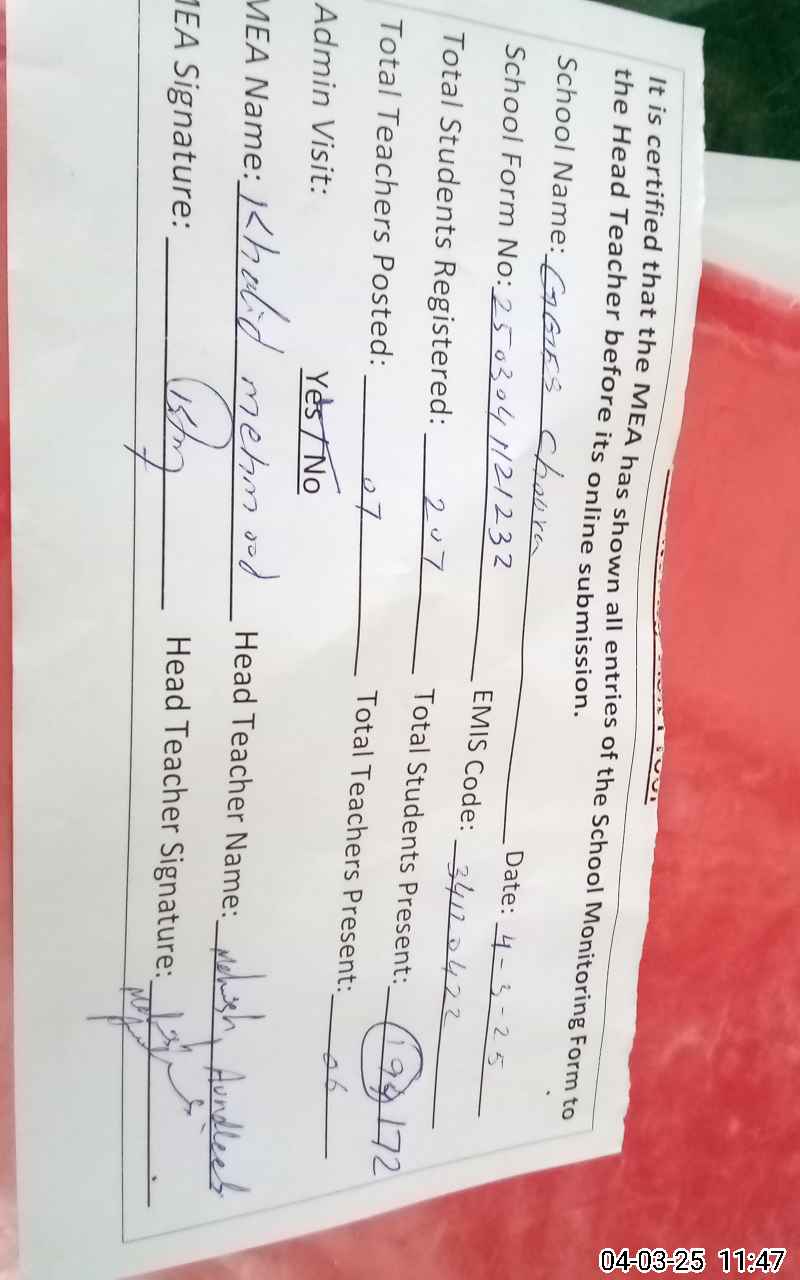 It is certified that the MEA has shown all entries of the School Monitoring Form to
the Head Teacher before its online submission.
School Name: GGES Date: 4-3-25
School Form No: 2503041121232 EMIS Code: 34120422
Total Students Registered: 207 Total Students Present: 172
Total Teachers Posted: 07 Total Teachers Present: 06
Admin Visit: Yes / No
MEA Name: Khalid mehmood Head Teacher Name: Mehwish
MEA Signature: Head Teacher Signature:
04-03-25 11:47